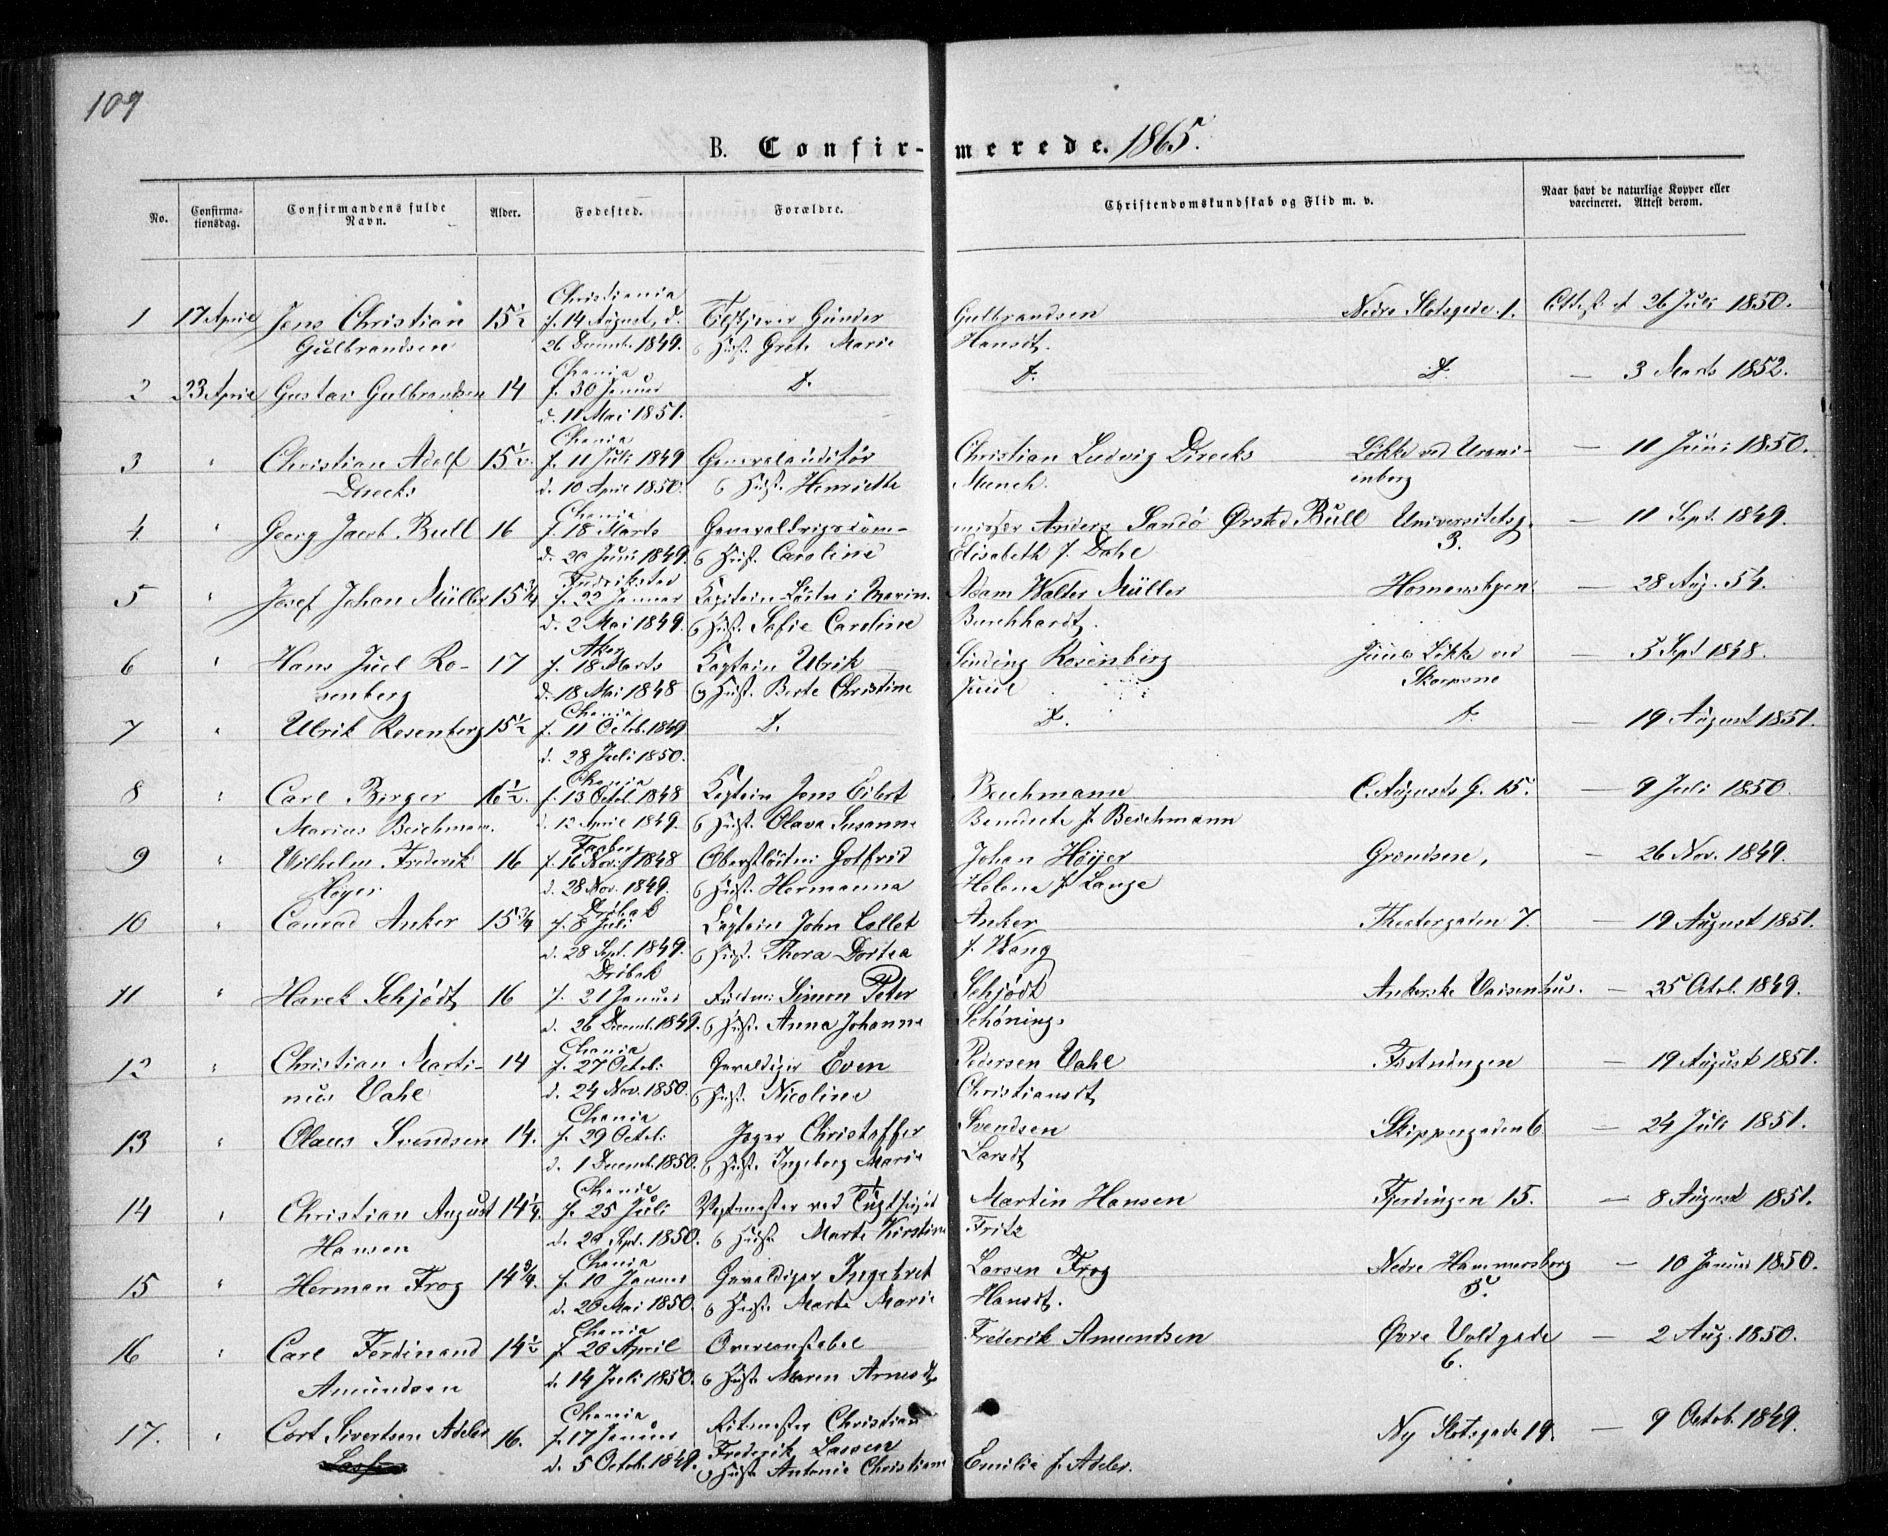 109
B. Confir- merede. 1865.
No. Confirma- tionsdag. Confirmandens fulde Navn. Alder. Fødested. Forældre. Christendomskundskab og Flid m. v. Naar havt de naturlige Kopper eller vaccineret. Attest derom.
Christiania
1 17 April Jens Christian 15½ f. 14 August, d. Gunder Gulbrandsen Nedre Slotsgade 1. Attest af 26 Juli 1850.
Gulbrandsen 26 Decemb. 1849. & Hust. Grete Marie Hansdt.
Chania
2 23 April Gustav Gulbrandsen 14 f. 30 Januar D. D. D. — 3 Marts 1852.
d. 11 Mai 1851.
Chania
3 " Christian Adolf 15½ f. 11 Juli 1849 Generalauditør Christian Ludvig Diecks Løkke ved Urani- — 11 Juni 1850.
Diecks d. 10 April 1850. & Hust. Henriette Munch. enborg
Chania
4 " Georg Jacob Bull 16 f. 18 Marts Generalkrigscom- missær Anders Sandø Ørsted Bull Universitetsg. — 11 Sept. 1849.
d. 20 Juni 1849. & Hust. Caroline Elisabeth f. Dahl 3.
Fredrikstad
5 " Josef Johan Müller 15¾ f. 22 Januar Kaptein Løitn. i Marin. Adam Walter Müller Homansbyen — 28 Aug. 54.
d. 2 Mai 1849. & Hust. Sofie Caroline Burchhardt.
Aker
6 " Hans Juel Ro- 17 f. 18 Marts Kaptein Ulrik Sinding Rosenberg Juuls Løkke ved — 5 Sept 1848.
senberg d. 18 Mai 1848 & Hust. Berte Christine Juul Skarpsno
Chania
7 " Ulrik Rosenberg 15½ f. 11 Octob. 1849 D. D. D. — 19 August 1851.
d. 28 Juli 1850.
Chania
8 " Carl Birger 16½. f. 13 Octob. 1848 Kaptein Jens Eilert Beichmann C. Augusts G. 15. — 9 Juli 1850.
Marius Beichman. d. 12 April 1849. & Hust. Olava Susanne Benedicte f. Beichmann
9 " Vilhelm Frederik 16 f. 16 Nov. 1848 Oberstløitn. Gotfrid Johan Høyer Grændsen, — 26 Nov. 1849.
Høyer d. 28 Nov. 1849. & Hust. Hermanna Helena f. Lange
Drøbak
10 " Conrad Anker 15¾ f. 8 Juli Kaptein John Collet Anker Theatergaden 7. — 19 August 1851.
d. 28 Sept. 1849. & Hust. Thora Dortea f. Wang
Drøbak
11 " Harek Schjødt 16 f. 21 Januar Fuldm. Simon Peter Schjødt Ankerske Vaisenhus. — 25 Octob. 1849.
d. 26 Decemb. 1849. & Hust. Anna Johanne Schøning.
Chania
12 " Christian Marti- 14 f. 27 Octob. Gevaldiger Even Pedersen Vahl Fæstningen — 19 August 1851.
nius Vahl d. 24 Nov. 1850. & Hust. Nicoline Christiansdt
Chania
13 " Olaus Svendsen 14. f. 29 Octob. Jæger Christoffer Svendsen Skippergaden 6. — 24 Juli 1851.
d. 1 Decemb. 1850. & Hust. Ingeborg Marie Larsdt
Chania
14 " Christian August 14¼. f. 25 Juli Vagtmester ved Tugthuset Martin Hansen Fjerdingen 15. — 8 August 1851.
Hansen d. 29 Sept. 1850. & Hust. Marte Kirstine Fritz
Chania
15 " Herman Frog 14¾. f. 10 Januar Gevaldiger Ingebret Larsen Frog Nedre Hammersborg — 10 Januar 1850.
d. 20 Mai 1850. & Hust. Marte Marie Hansdt. 5.
Chania
16 " Carl Ferdinand 14½ f. 20 April Overconstabel Frederik Amundsen Øvre Voldgade — 2 Aug. 1850.
Amundsen d. 14 Juli 1850. & Hust. Maren Arnesdt. 6.
Chania
17. " Cort Sivertsen Adeler 16. f. 17 Januar Ritmester Christian Ny Slotsgade 19. — 9 Octob. 1849.
d. 5 Octob. 1849. Frederik Lassen
& Hust. Antonie Christiane Emilia f. Adeler.